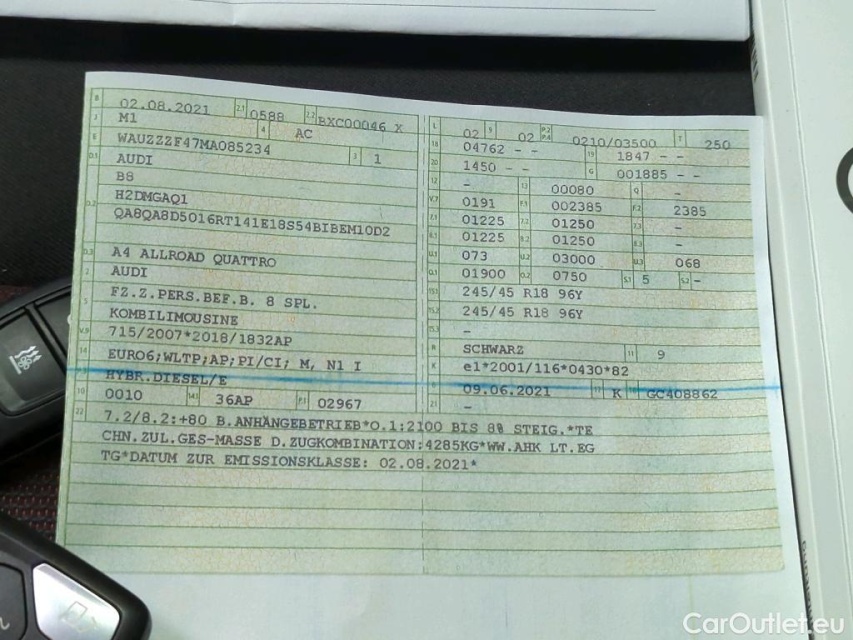 B 02.08.2021 2.1 0588 2.2 BXC00046 X
J M1 4 AC
E WAUZZZF47MA085234 3 1
D.1 AUDI
B8
D.2 H2DMGAQ1
QA8QA8D5016RT141E18S54BIBEM10D2
D.3 A4 ALLROAD QUATTRO
2 AUDI
5 FZ.Z.PERS.BEF.B. 8 SPL.
KOMBILIMOUSINE
V.9 715/2007*2018/1832AP
14 EURO6;WLTP;AP;PI/CI; M, N1 I
HYBR.DIESEL/E
10 0010 14.1 36AP P.1 02967
L 02 9 02 P.2 P.4 0210/03500 T 250
18 04762 - - 19 1847 - -
20 1450 - - G 001885 - -
12 - 13 00080 Q -
V.7 0191 F.1 002385 F.2 2385
7.1 01225 7.2 01250 7.3 -
8.1 01225 8.2 01250 8.3 -
U.1 073 U.2 03000 U.3 068
O.1 01900 O.2 0750 S.1 5 S.2 -
15.1 245/45 R18 96Y
15.2 245/45 R18 96Y
15.3 -
R SCHWARZ 11 9
K e1*2001/116*0430*82
6 09.06.2021 17 K 16 GC408862
21 -
22 7.2/8.2:+80 B.ANHÄNGEBETRIEB*O.1:2100 BIS 8% STEIG.*TE
CHN.ZUL.GES-MASSE D.ZUGKOMBINATION:4285KG*WW.AHK LT.EG
TG*DATUM ZUR EMISSIONSKLASSE: 02.08.2021*
CarOutlet.eu